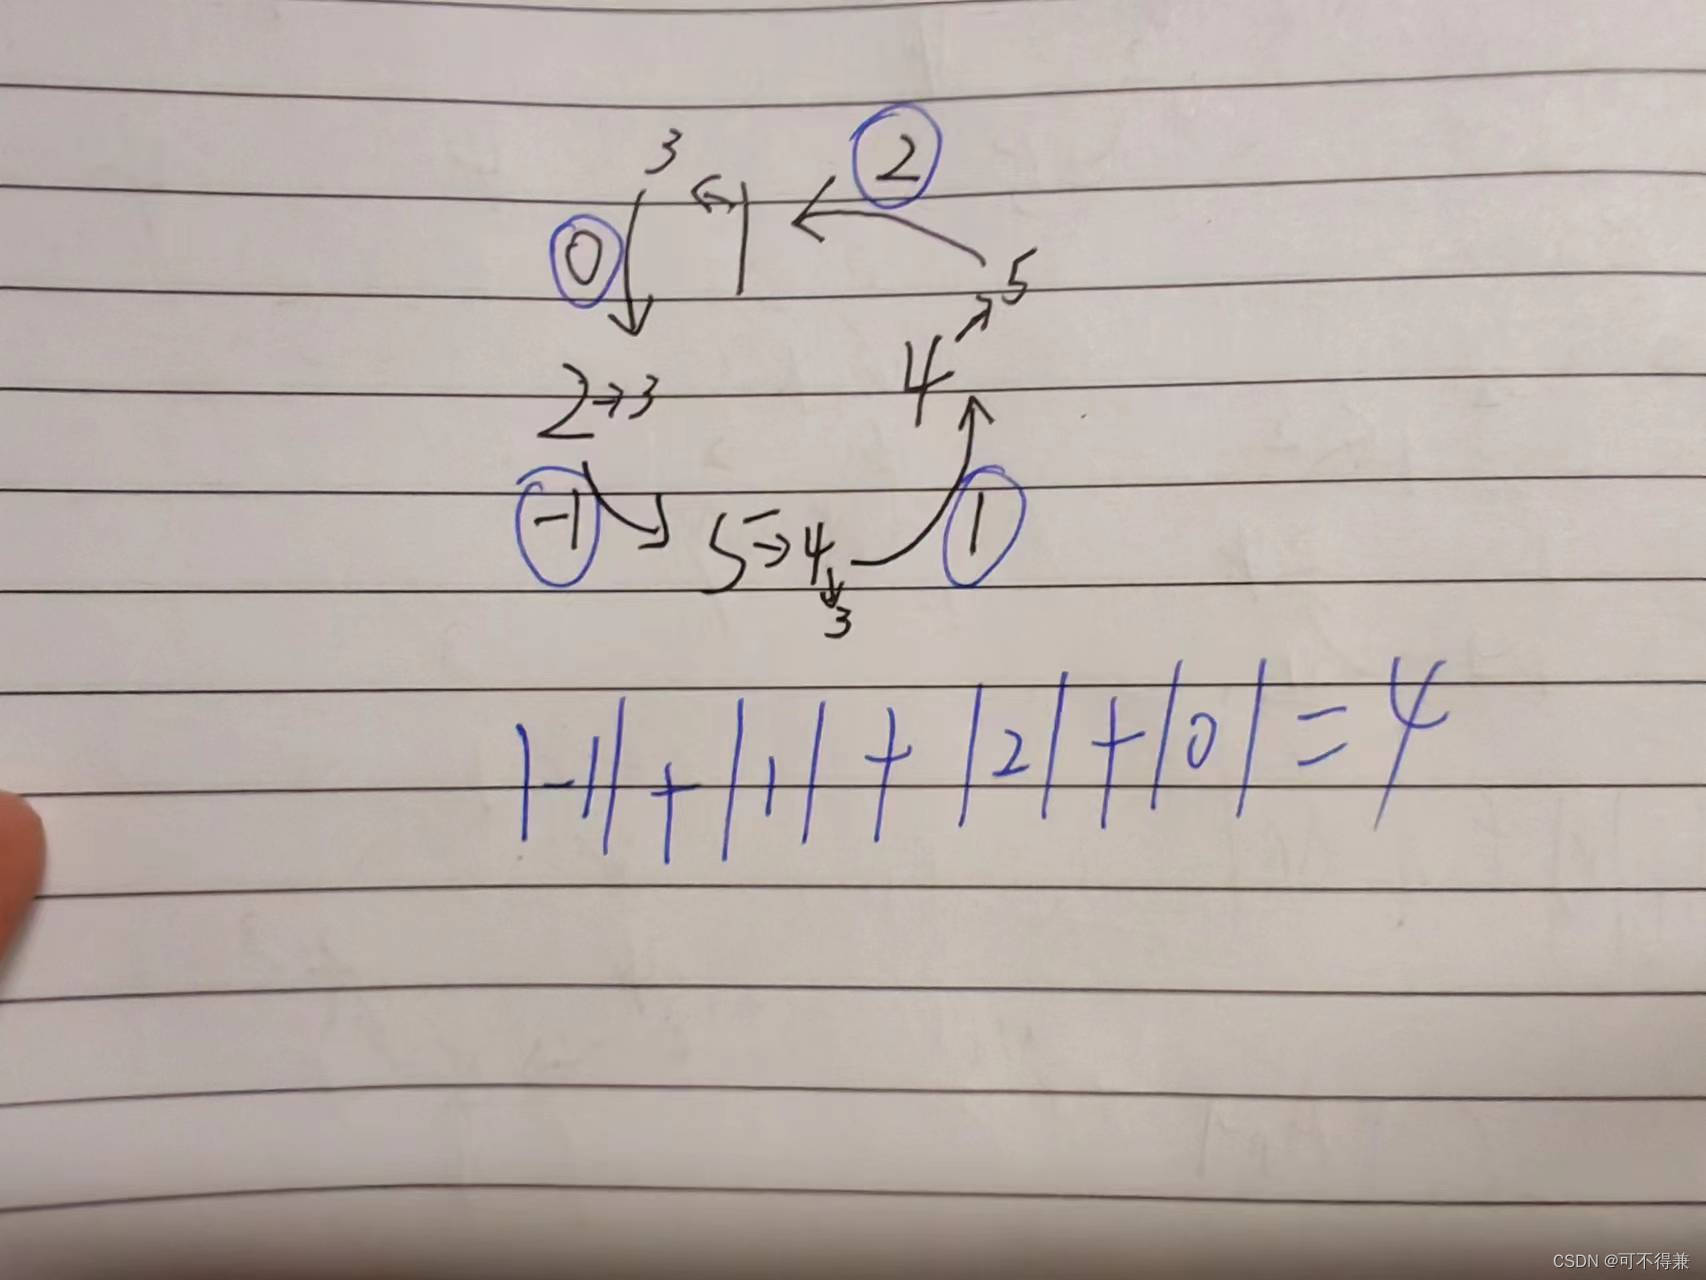 3 ← 1 ← ②
⓪ 5
2→3 4
-1 5→4 1
3
|-1|+|1|+|2|+|0|=4
CSDN @可不得兼